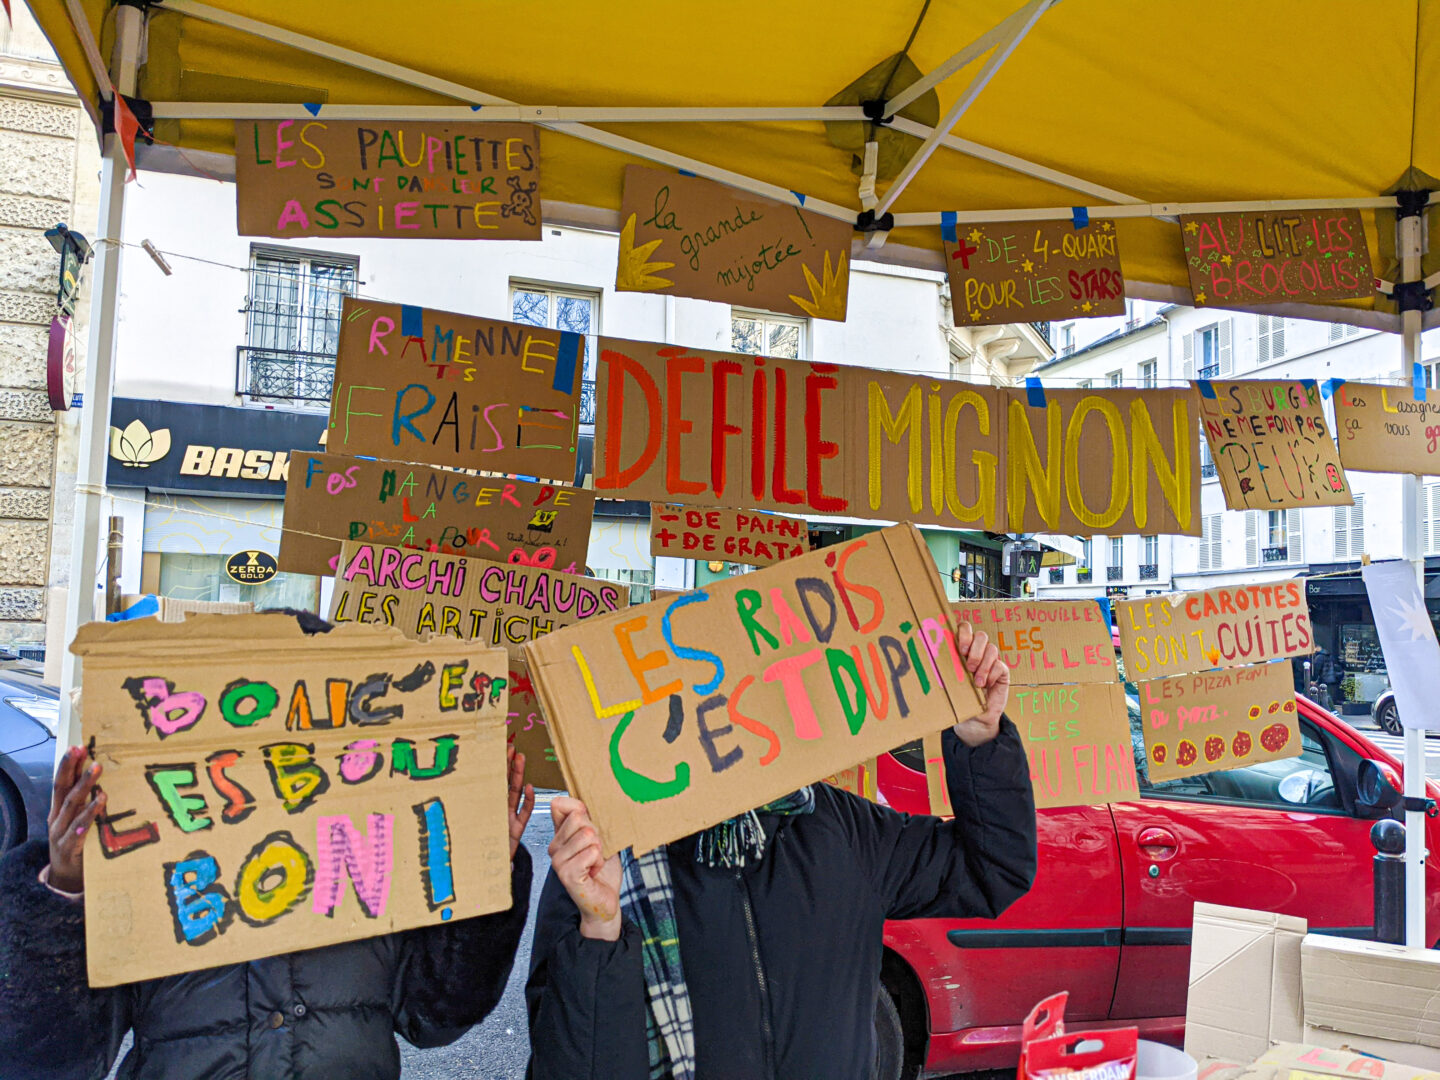 LES PAUPIETTES
SONT DANS LEUR
ASSIETTE
la
grande
mijotée !
+ DE 4-QUART
POUR LES STARS
AU LIT LES
BROCOLIS
RAMENNE
TES
FRAISE !
DÉFILÉ MIGNON
LES BURGER
NE ME FON PAS
PEU
Les Lasagne
ça vous
BASK
FOS MANGER DE
LA
POUR
- DE PAIN
+ DE GRATI
ZERDA
GOLD
ARCHI CHAUDS
LES ARTICH
LES RADIS
C'EST DU PIPI
BONC C'EST
LES BON
BON
BON !
LES NOUILLES
LES
UILLES
LES CAROTTES
SONT CUITES
TEMPS
LES
AU FLAN
LES PIZZA FONT
Bar
AMSTERDAM